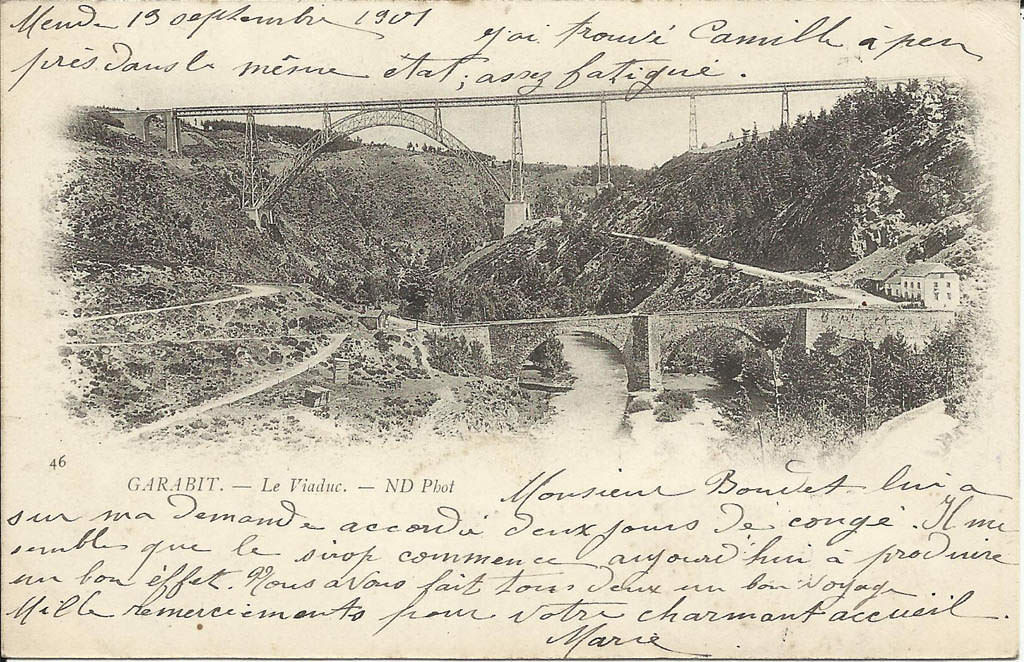 Mende 13 septembre 1901
j'ai trouvé Camille à peu
près dans le même état, assez fatigué.
46
GARABIT. — Le Viaduc. — ND Phot
Monsieur Boudet lui a
sur ma demande accordé deux jours de congé. Il me
semble que le sirop commence aujourd'hui à produire
un bon effet. Nous avons fait tous deux un bon voyage
Mille remerciements pour votre charmant accueil.
Marie